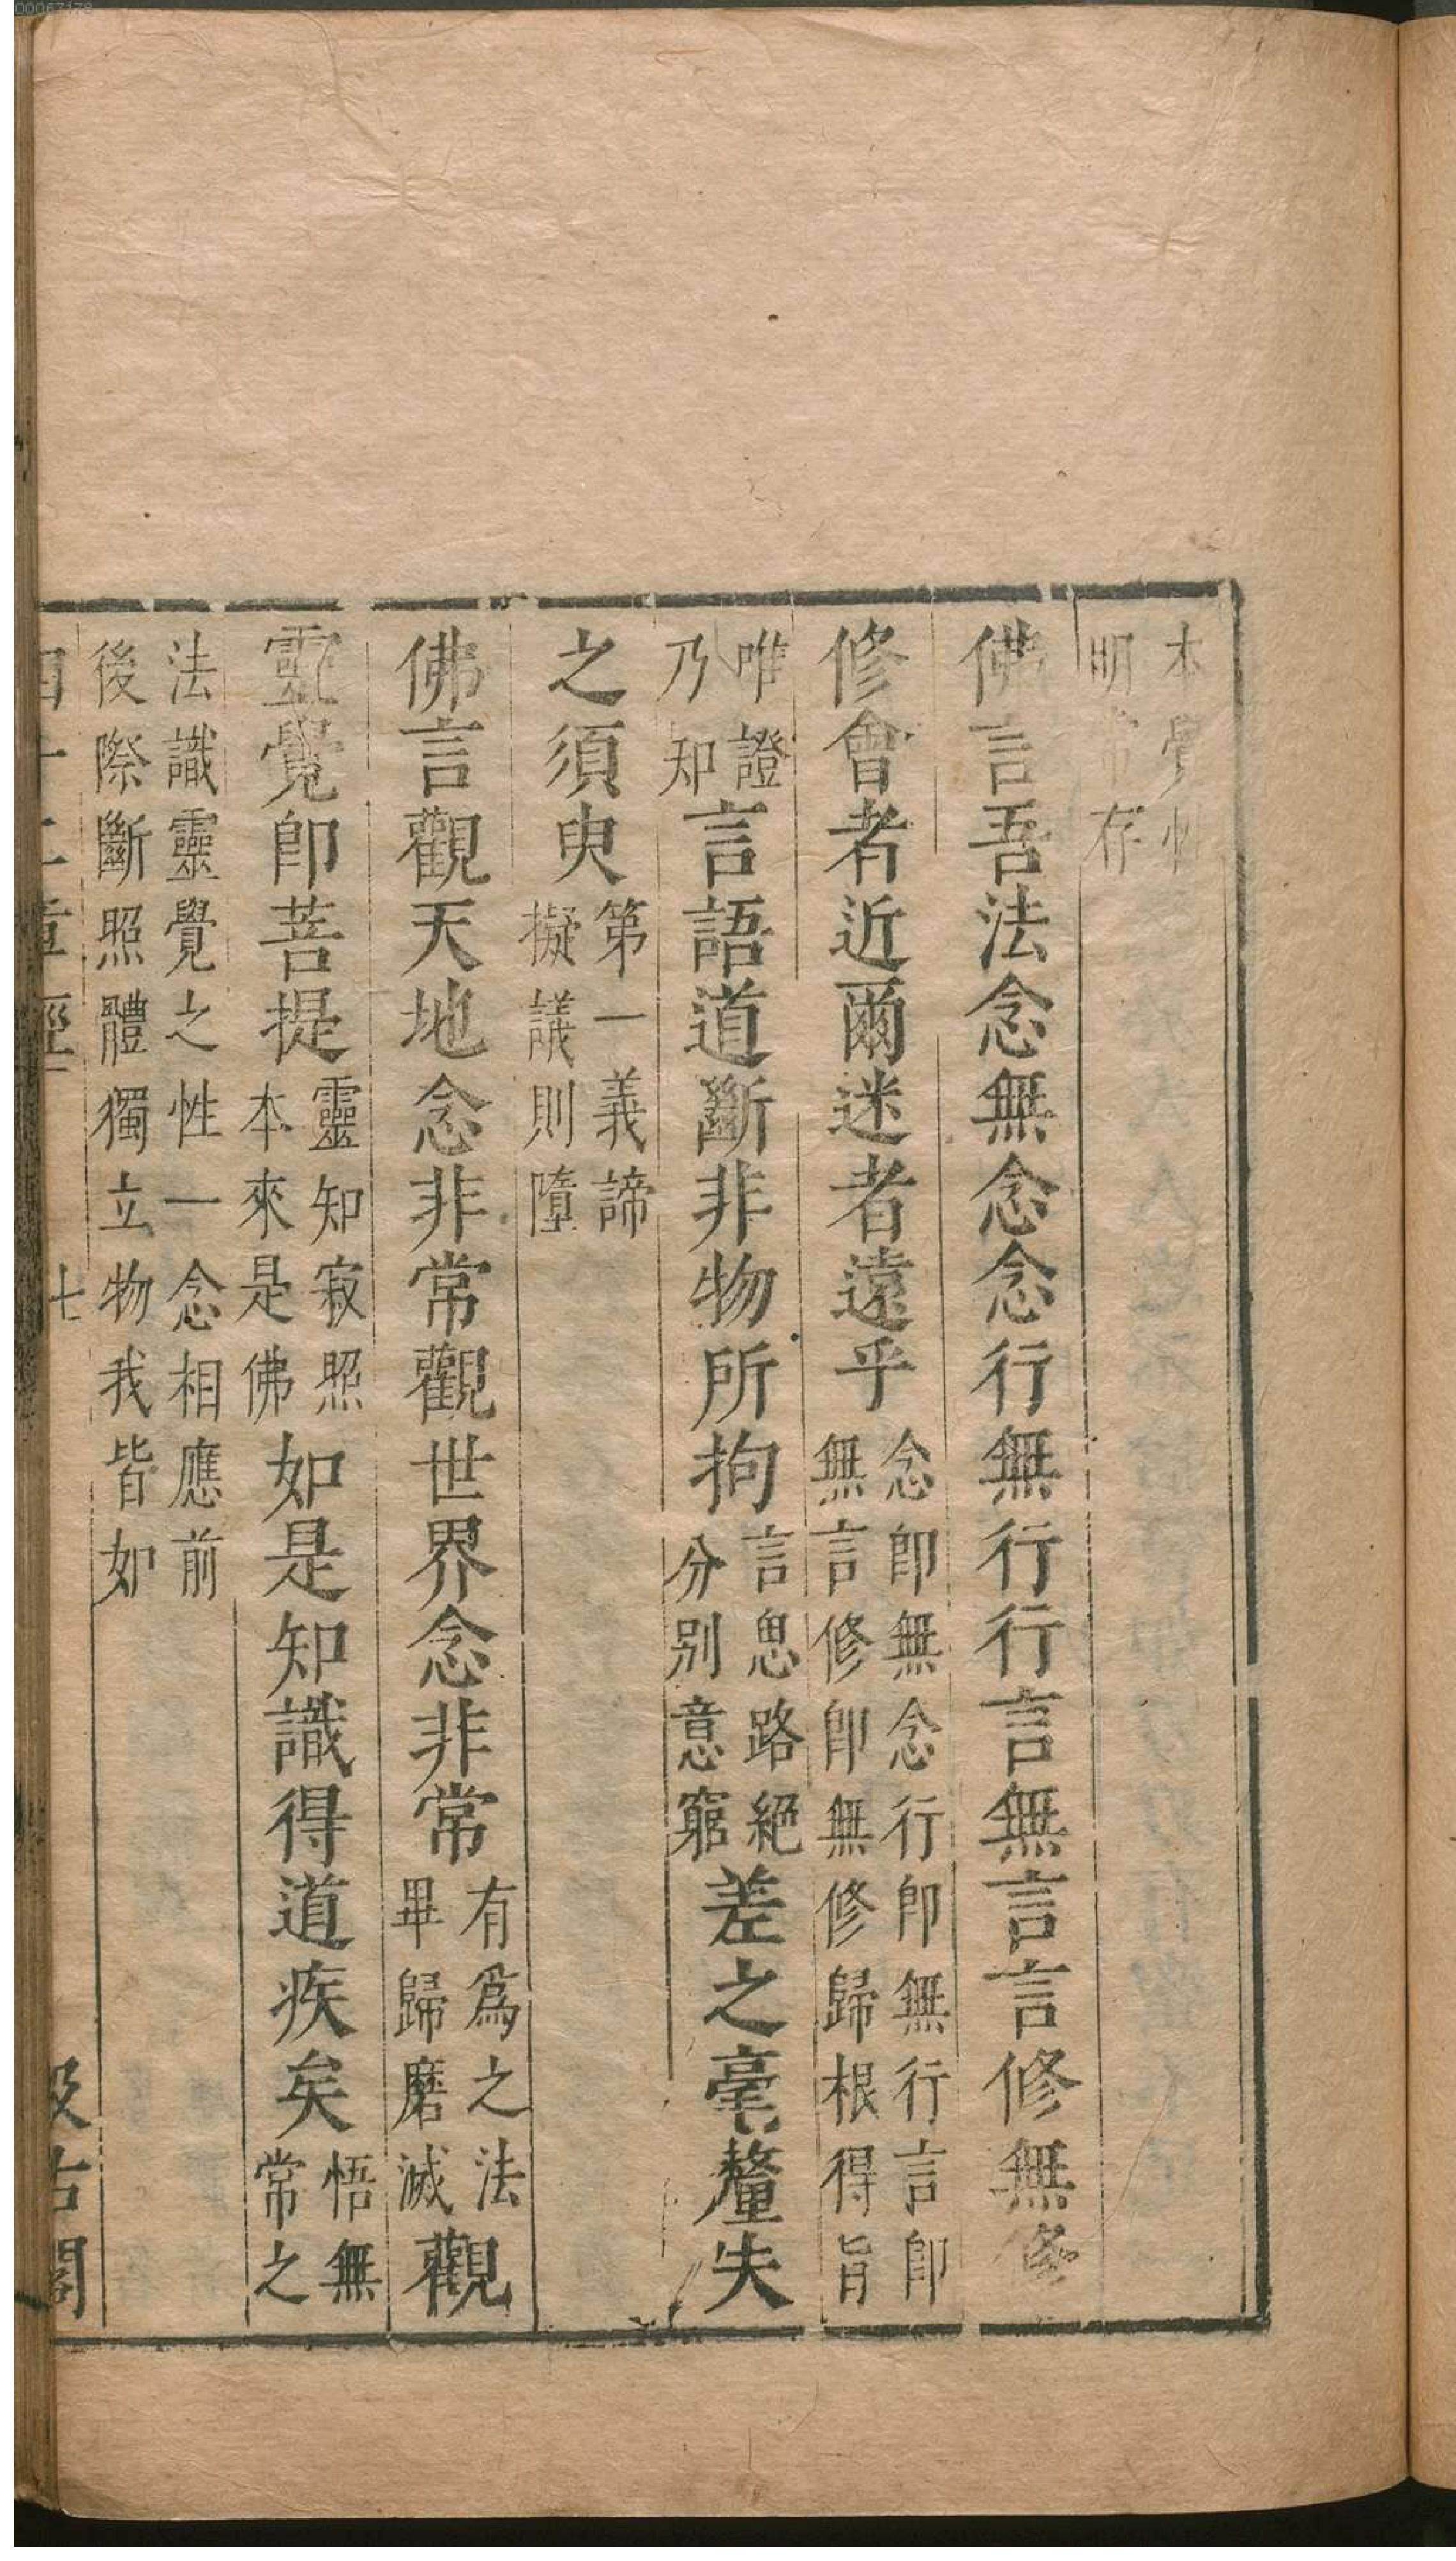 本覺性
明常存
佛言吾法念無念念行無行行言無言言修無修
修會者近爾迷者遠乎念卽無念行卽無行言卽
無言修卽無修歸根得旨
唯證
乃知言語道斷非物所拘言思路絕
分别意窮差之毫釐失
之須臾第一義諦
擬議則墮
佛言觀天地念非常觀世界念非常有爲之法
畢歸磨滅觀
靈覺卽菩提靈知寂照
本來是佛如是知識得道疾矣悟無
常之
法識靈覺之性一念相應前
後際斷照體獨立物我皆如
四十二章經
七
汲古閣
00067178